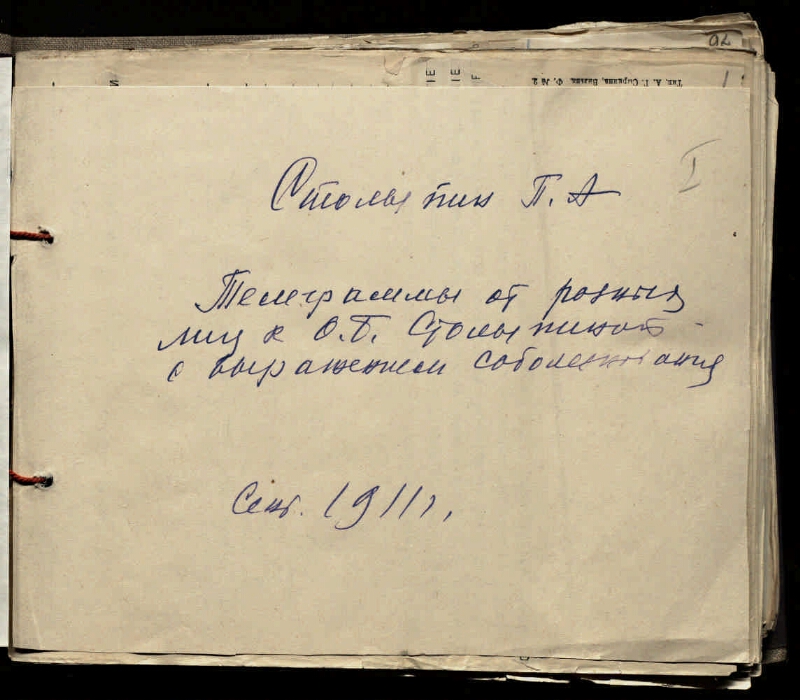 92
Тип. А. Г. Сыркина, Вильна. Ф. № 2
I
Столыпин П. А
Телеграммы от разных
лиц к О.Б. Столыпиной
с выражением соболезнования
Сент. 1911 г.